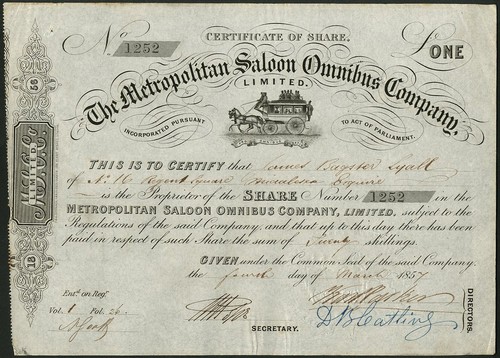 CERTIFICATE OF SHARE.
No 1252
£ONE
The Metropolitan Saloon Omnibus Company,
LIMITED.
INCORPORATED PURSUANT
TO ACT OF PARLIAMENT.
THIS IS TO CERTIFY that James Bagster Lyall
of No. 16 Regent Square Middlesex Esquire
is the Proprietor of the SHARE Number 1252 in the
METROPOLITAN SALOON OMNIBUS COMPANY, LIMITED, subject to the
Regulations of the said Company; and that up to this day there has been
paid in respect of such Share the sum of Twenty shillings.
GIVEN under the Common Seal of the said Company,
the fourth day of March 1857
Entd. on Regr.
Vol. 1 Fol. 26.
SECRETARY.
DIRECTORS.
18 56
LIMITED